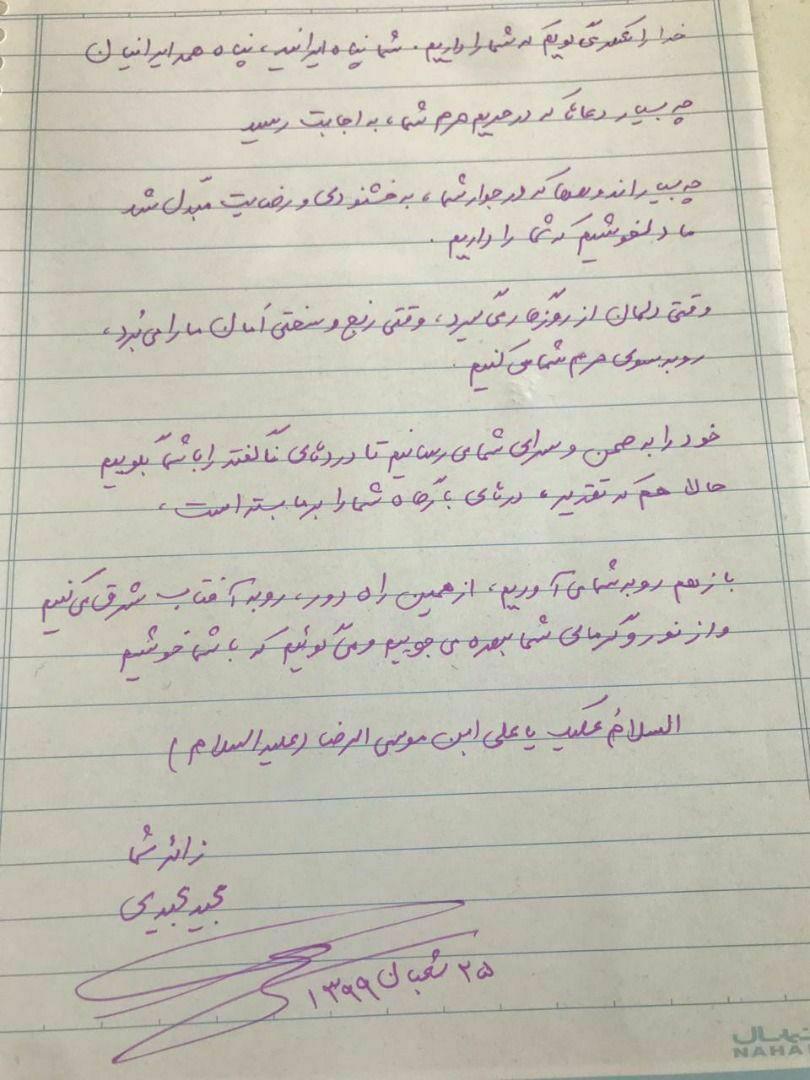 خدا را شکر می گویم که شما را داریم. شما پناه ایرانید، پناه همه ایرانیان
چه بسیار دعاها که در حریم حرم شما، به اجابت رسید
چه بسیار اندوه‌ها که در جوار شما، به خشنودی و رضایت مبدل شد
ما دلخوشیم که شما را داریم.
وقتی دلمان از روزگار می گیرد، وقتی رنج و سختی اَمان ما را می بُرد،
رو به سوی حرم شما می کنیم.
خود را به صحن و سرای شما می رسانیم تا دردهای ناگفته را با شما بگوییم
حالا هم که تقدیر، درهای بارگاه شما را بر ما بسته است،
باز هم رو به شما می آوریم، از همین راه دور، رو به آفتاب شرق می کنیم
و از نور و گرمای شما بهره می جوییم و می گوئیم که با شما خوشیم
السلامُ علیک یا علی ابن موسی الرضا (علیه السلام)
زائر شما
مجید مجیدی
۲۵ شعبان ۱۳۹۹
نهال
NAHA